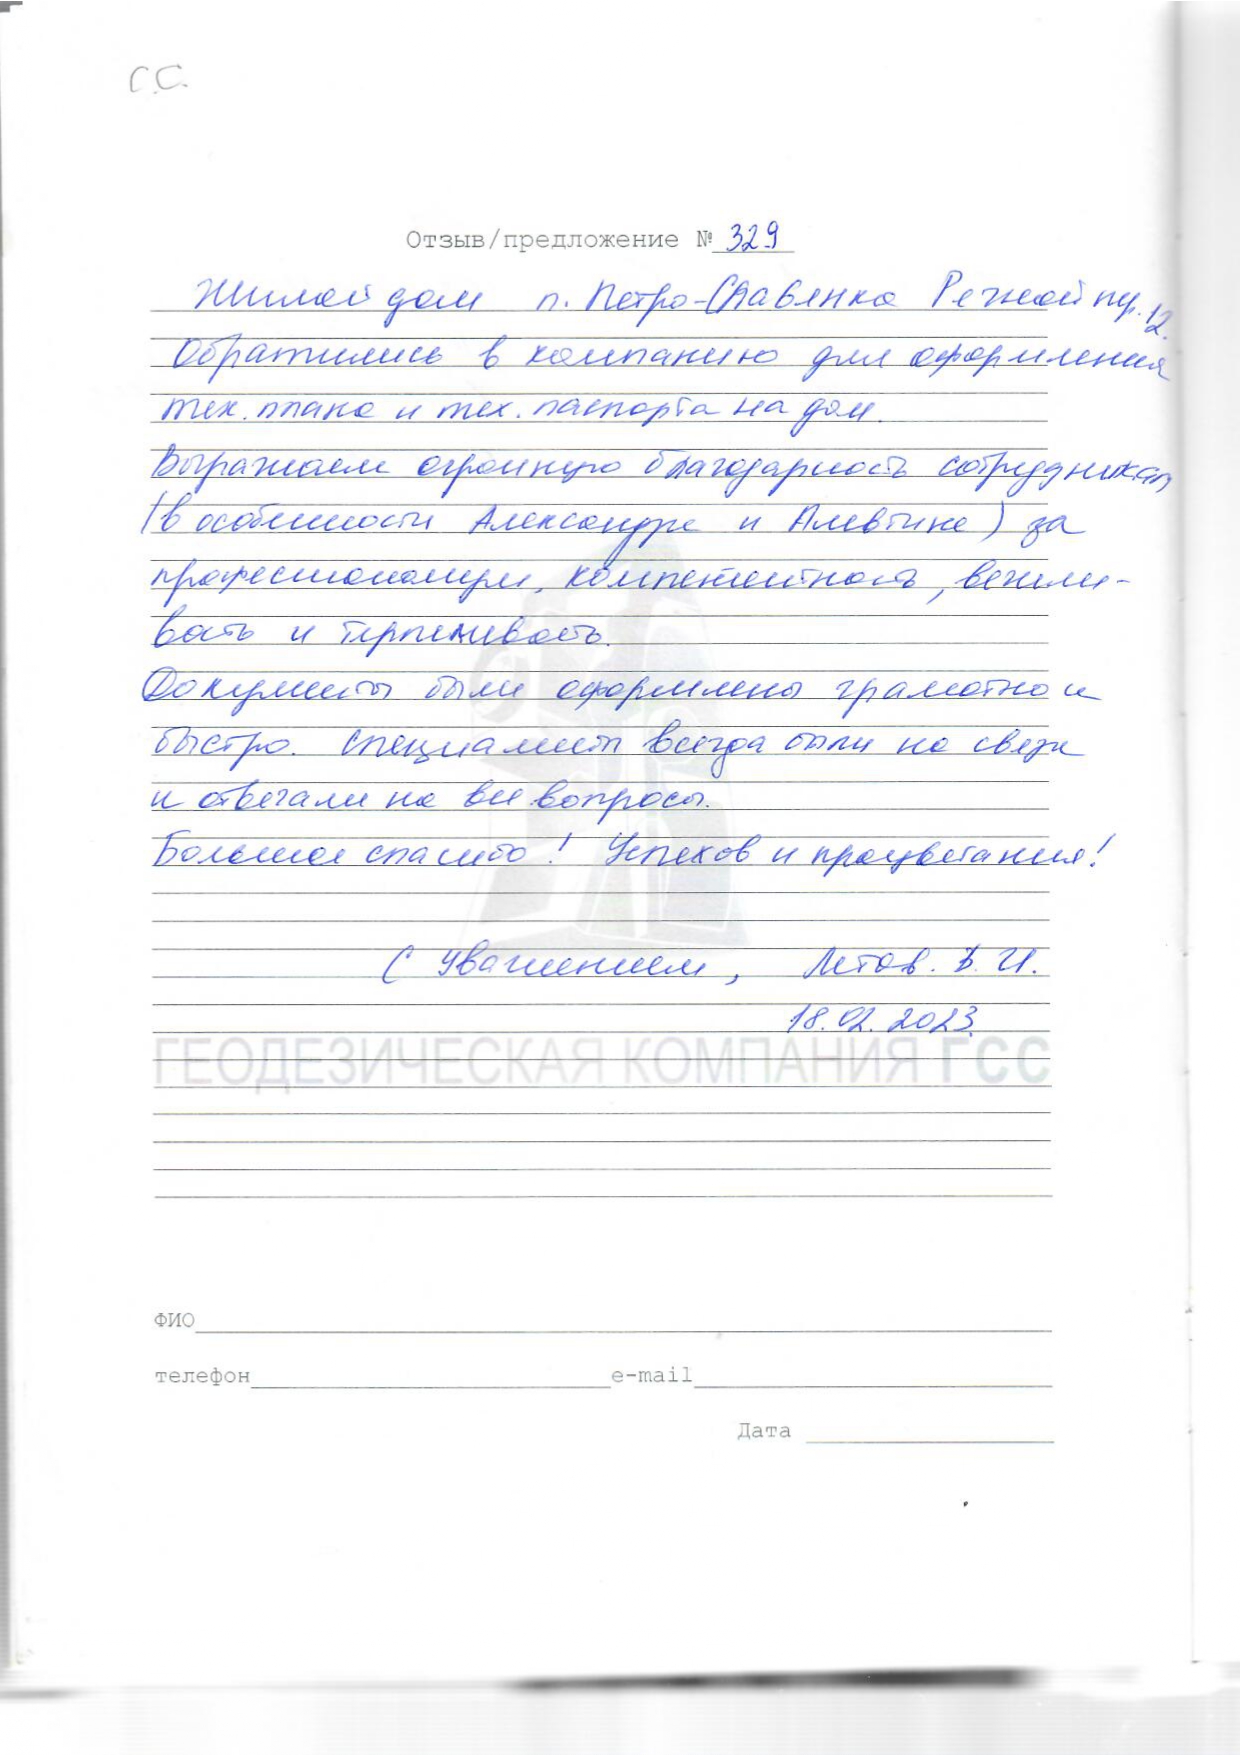 С.С.
Отзыв/предложение № 329
Жилой дом п. Петро-Славянка Речной пр. 12.
Обратились в компанию для оформления
тех. плана и тех. паспорта на дом.
Выражаем огромную благодарность сотрудникам
(в особенности Александре и Алевтине) за
профессионализм, компетентность, вежли-
вость и терпеливость.
Документы были оформлены грамотно и
быстро. Специалисты всегда были на связи
и отвечали на все вопросы.
Большое спасибо! Успехов и процветания!
С уважением, Летов. В. И.
18.02.2023.
ГЕОДЕЗИЧЕСКАЯ КОМПАНИЯ ГСС
ФИО
телефон e-mail
Дата